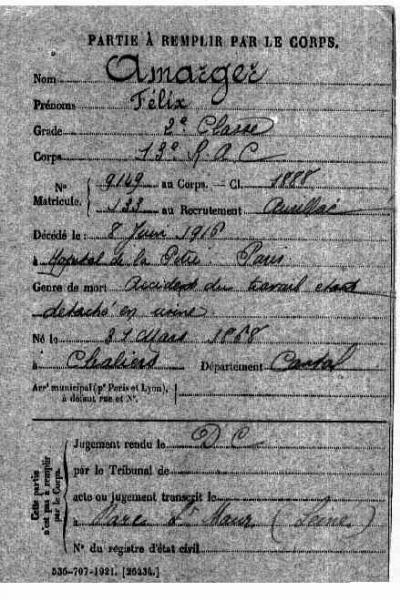 PARTIE À REMPLIR PAR LE CORPS.
Nom Amarger
Prénoms Félix
Grade 2e Classe
Corps 13e R.A.C
Nº Matricule. 9149 au Corps. — Cl. 1888
133 au Recrutement Aurillac
Décédé le : 8 Juin 1916
à Hôpital de la Pitié Paris
Genre de mort Accident du travail étant
détaché en usine
Né le 31 Mars 1868
à Chaliers Département Cantal
Arr' municipal (p' Paris et Lyon), à défaut rue et Nº.
Cette partie n'est pas à remplir par le Corps.
Jugement rendu le D C
par le Tribunal de
acte ou jugement transcrit le
à Parc St Maur (Seine)
Nº du registre d'état civil
536-707-1921. [26234.]